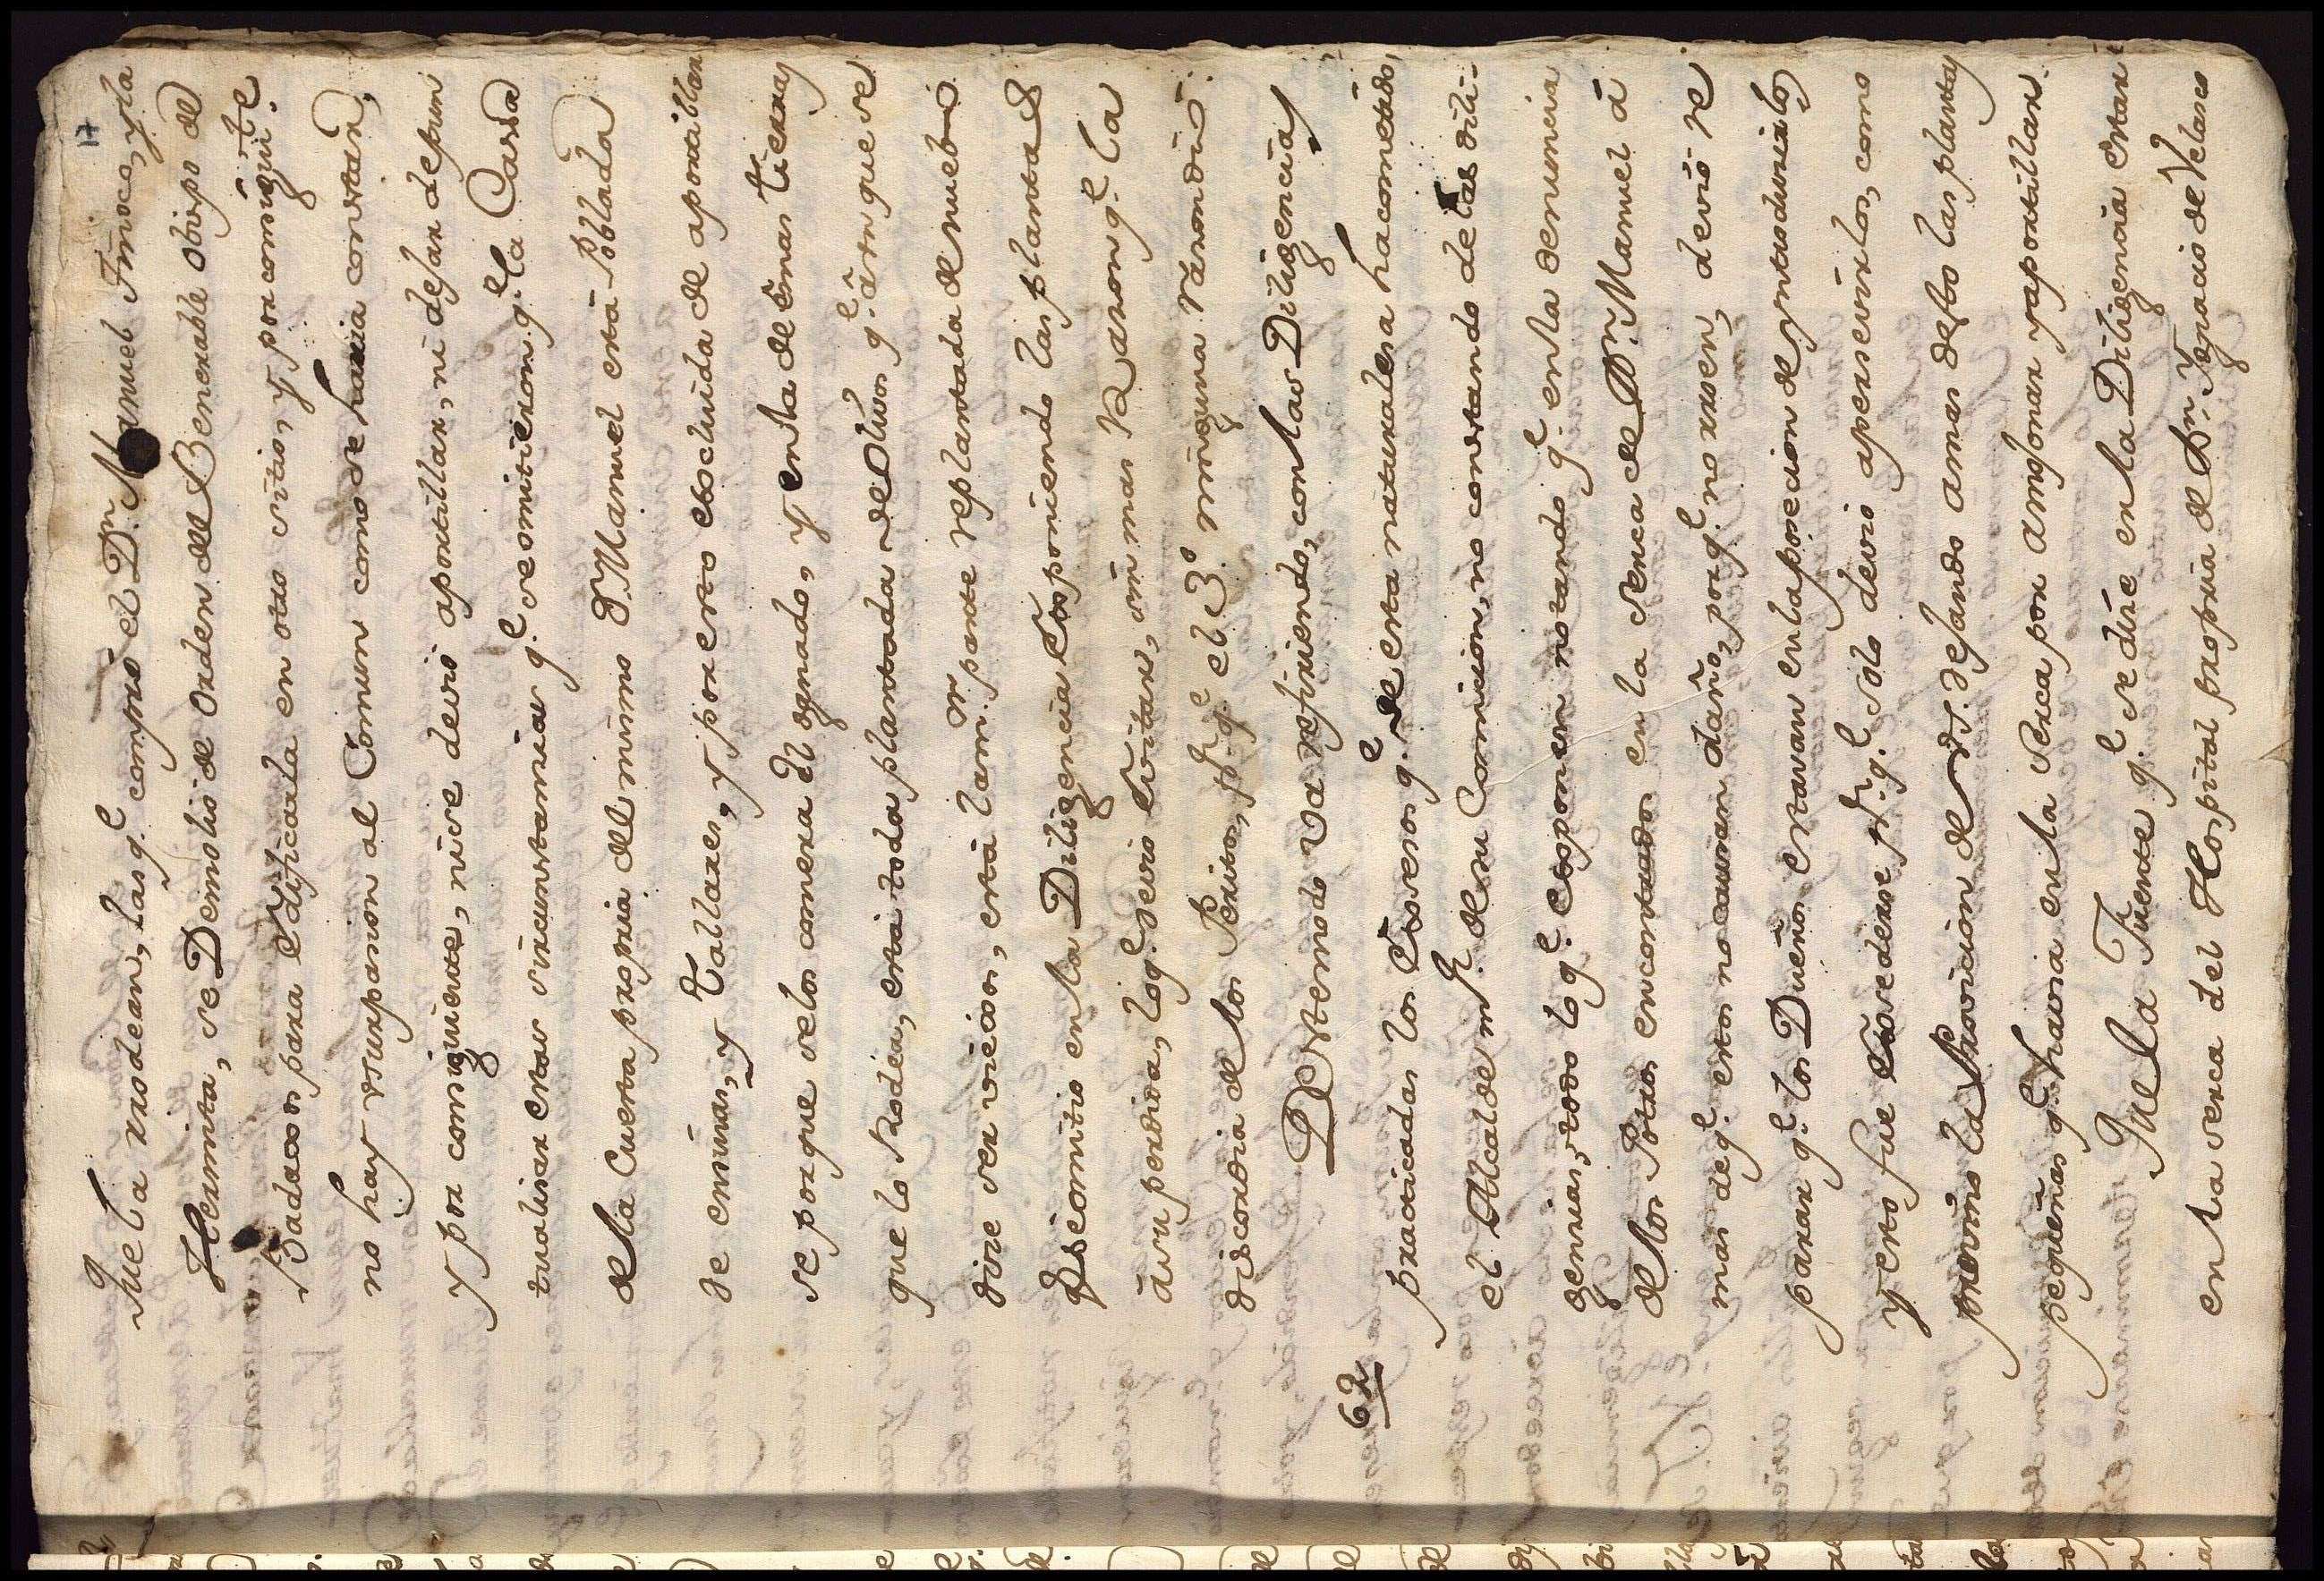 17
Que la rrodean, las q.e compró el D.n Manuel Tinoco, y la
Hermita, se Demolio de Orden del Benerable Obispo de
Badaxos para Edificarla en otro sitio, y por consigui.te
no hay usurpasion al Comun como se haria constar,
y por consiguiente, ni se devió aportillar, ni dejar de pun
tualisar estas sircunstancias q.e se omitieron q.e la Carsa
de la Cuesta propria del mismo D.n Manuel está Poblada
de ensinas, y Tallares, y por esto escluida de aportillar
se porque se los comera el Ganado, y en la de Senas tierras
que lo Rodea, esta toda plantada de Olivos q.e aun que se
dise ser viejos, está tam.n parte replantada de nuebo
Descomitio en la Diligencia Exsponiendo las plantas
a su perdida, lo q.e devio Evitar, sin mas Rason q.e la
discordia de los Peritos, p.r q.e el 3.o ninguna Rason dió.
Deste modo va refiriendo, con las Diligencias
62
practicadas los Exsesos q.e de esta naturalesa ha cometido,
el Alcalde m.r de su Comision, no constando de las dili-
gencias, todo lo q.e Exsponen notando q.e en la denuncia
de los Potros encontrados en la serca de D.n Manuel a
mas de q.e estos no causan daño, por q.e no rrosen, devio re
parar q.e los Dueños estavan en la posecion de yntrodusirlos
y esto fue Exsederse p.r q.e solo devio apersevirlos, como
previno la Provicion de V.S. dejando a mas desto las plantas
pequeñas q.e havia en la Serca por amojonar y aportillar.
Que la Fuente q.e se dise en la Diligencia estar
en la serca del Hospital propria de D.n Ygnacio de Velasco